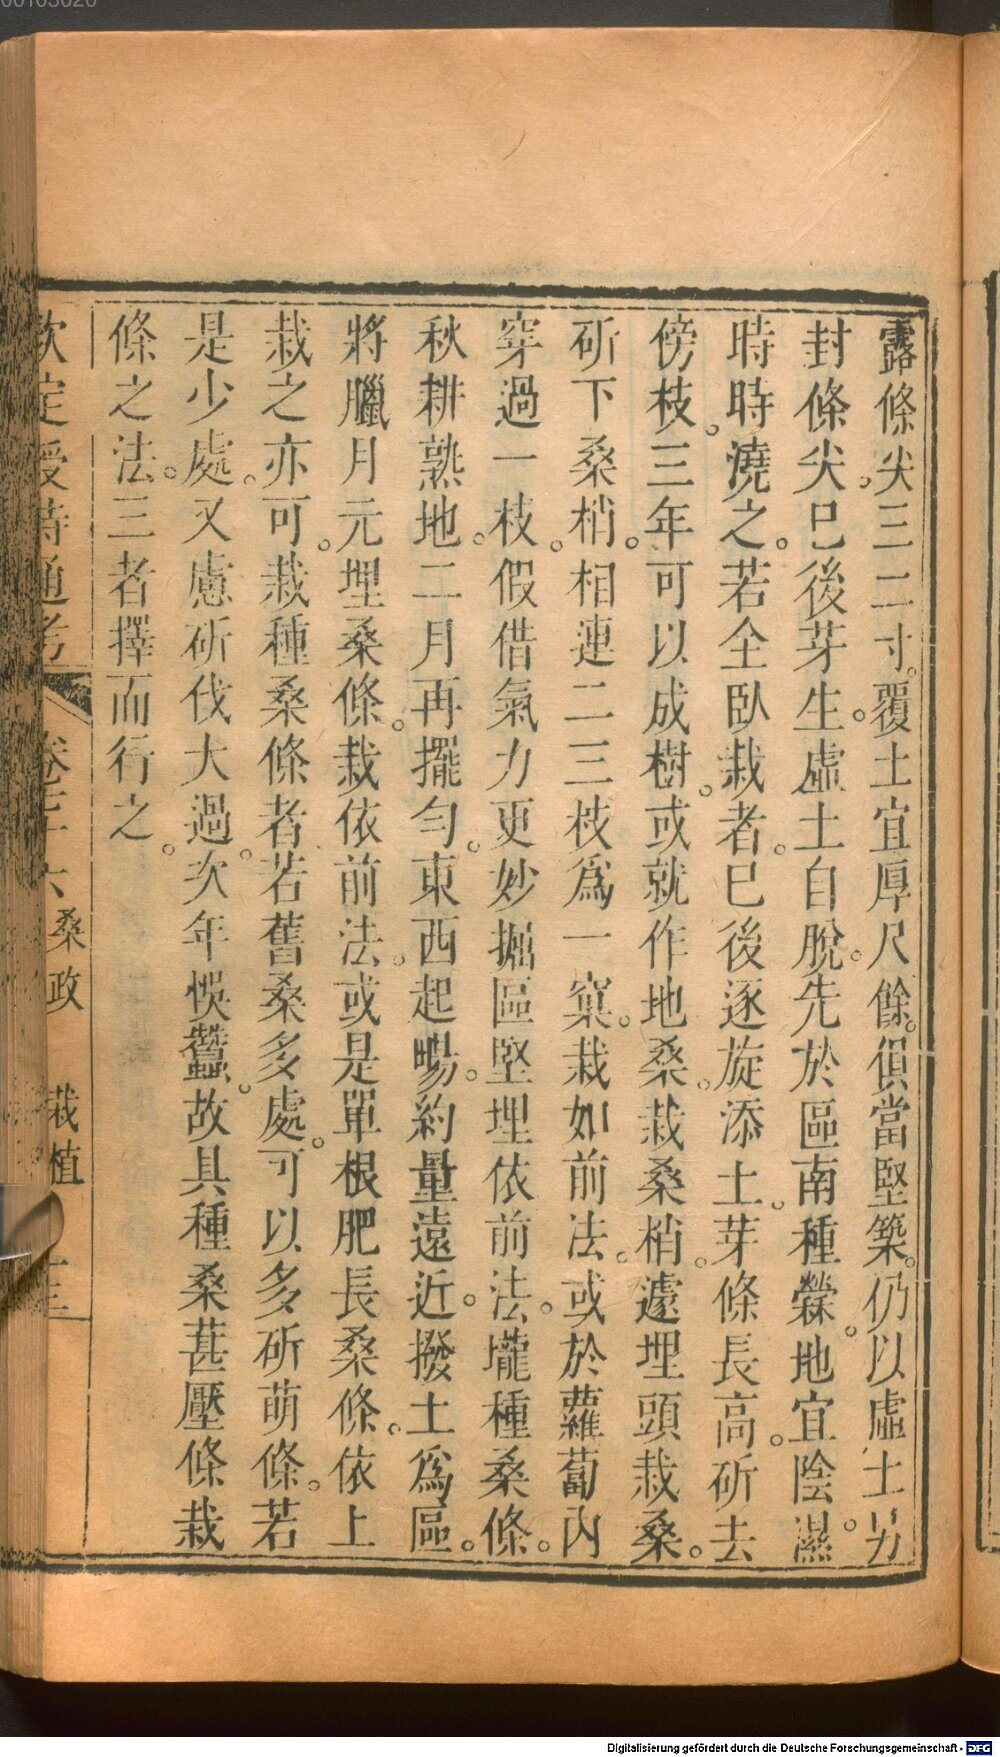 露條尖三二寸。覆土宜厚尺餘。俱當堅築。仍以虛土另
封條尖。巳後芽生。虛土自脫。先於區南種檾。地宜陰濕。
時時澆之。若全臥栽者。巳後逐旋添土。芽條長高。斫去
傍枝。三年可以成樹。或就作地桑。栽桑梢。遽埋頭栽桑。
斫下桑梢。相連二三枝爲一窠。栽如前法。或於蘿蔔內
穿過一枝。假借氣力更妙。掘區堅埋依前法。壠種桑條。
秋耕熟地。二月再擺勻。東西起畼。約量遠近。撥土爲區。
將臘月元埋桑條。栽依前法。或是單根肥長桑條。依上
栽之亦可。栽種桑條者。若舊桑多處。可以多斫萌條。若
是少處。又慮斫伐大過。次年悞蠶。故具種桑葚壓條栽
條之法。三者擇而行之。
欽定授時通考 卷三十六 桑政 栽植
00103020
Digitalisierung gefördert durch die Deutsche Forschungsgemeinschaft - DFG